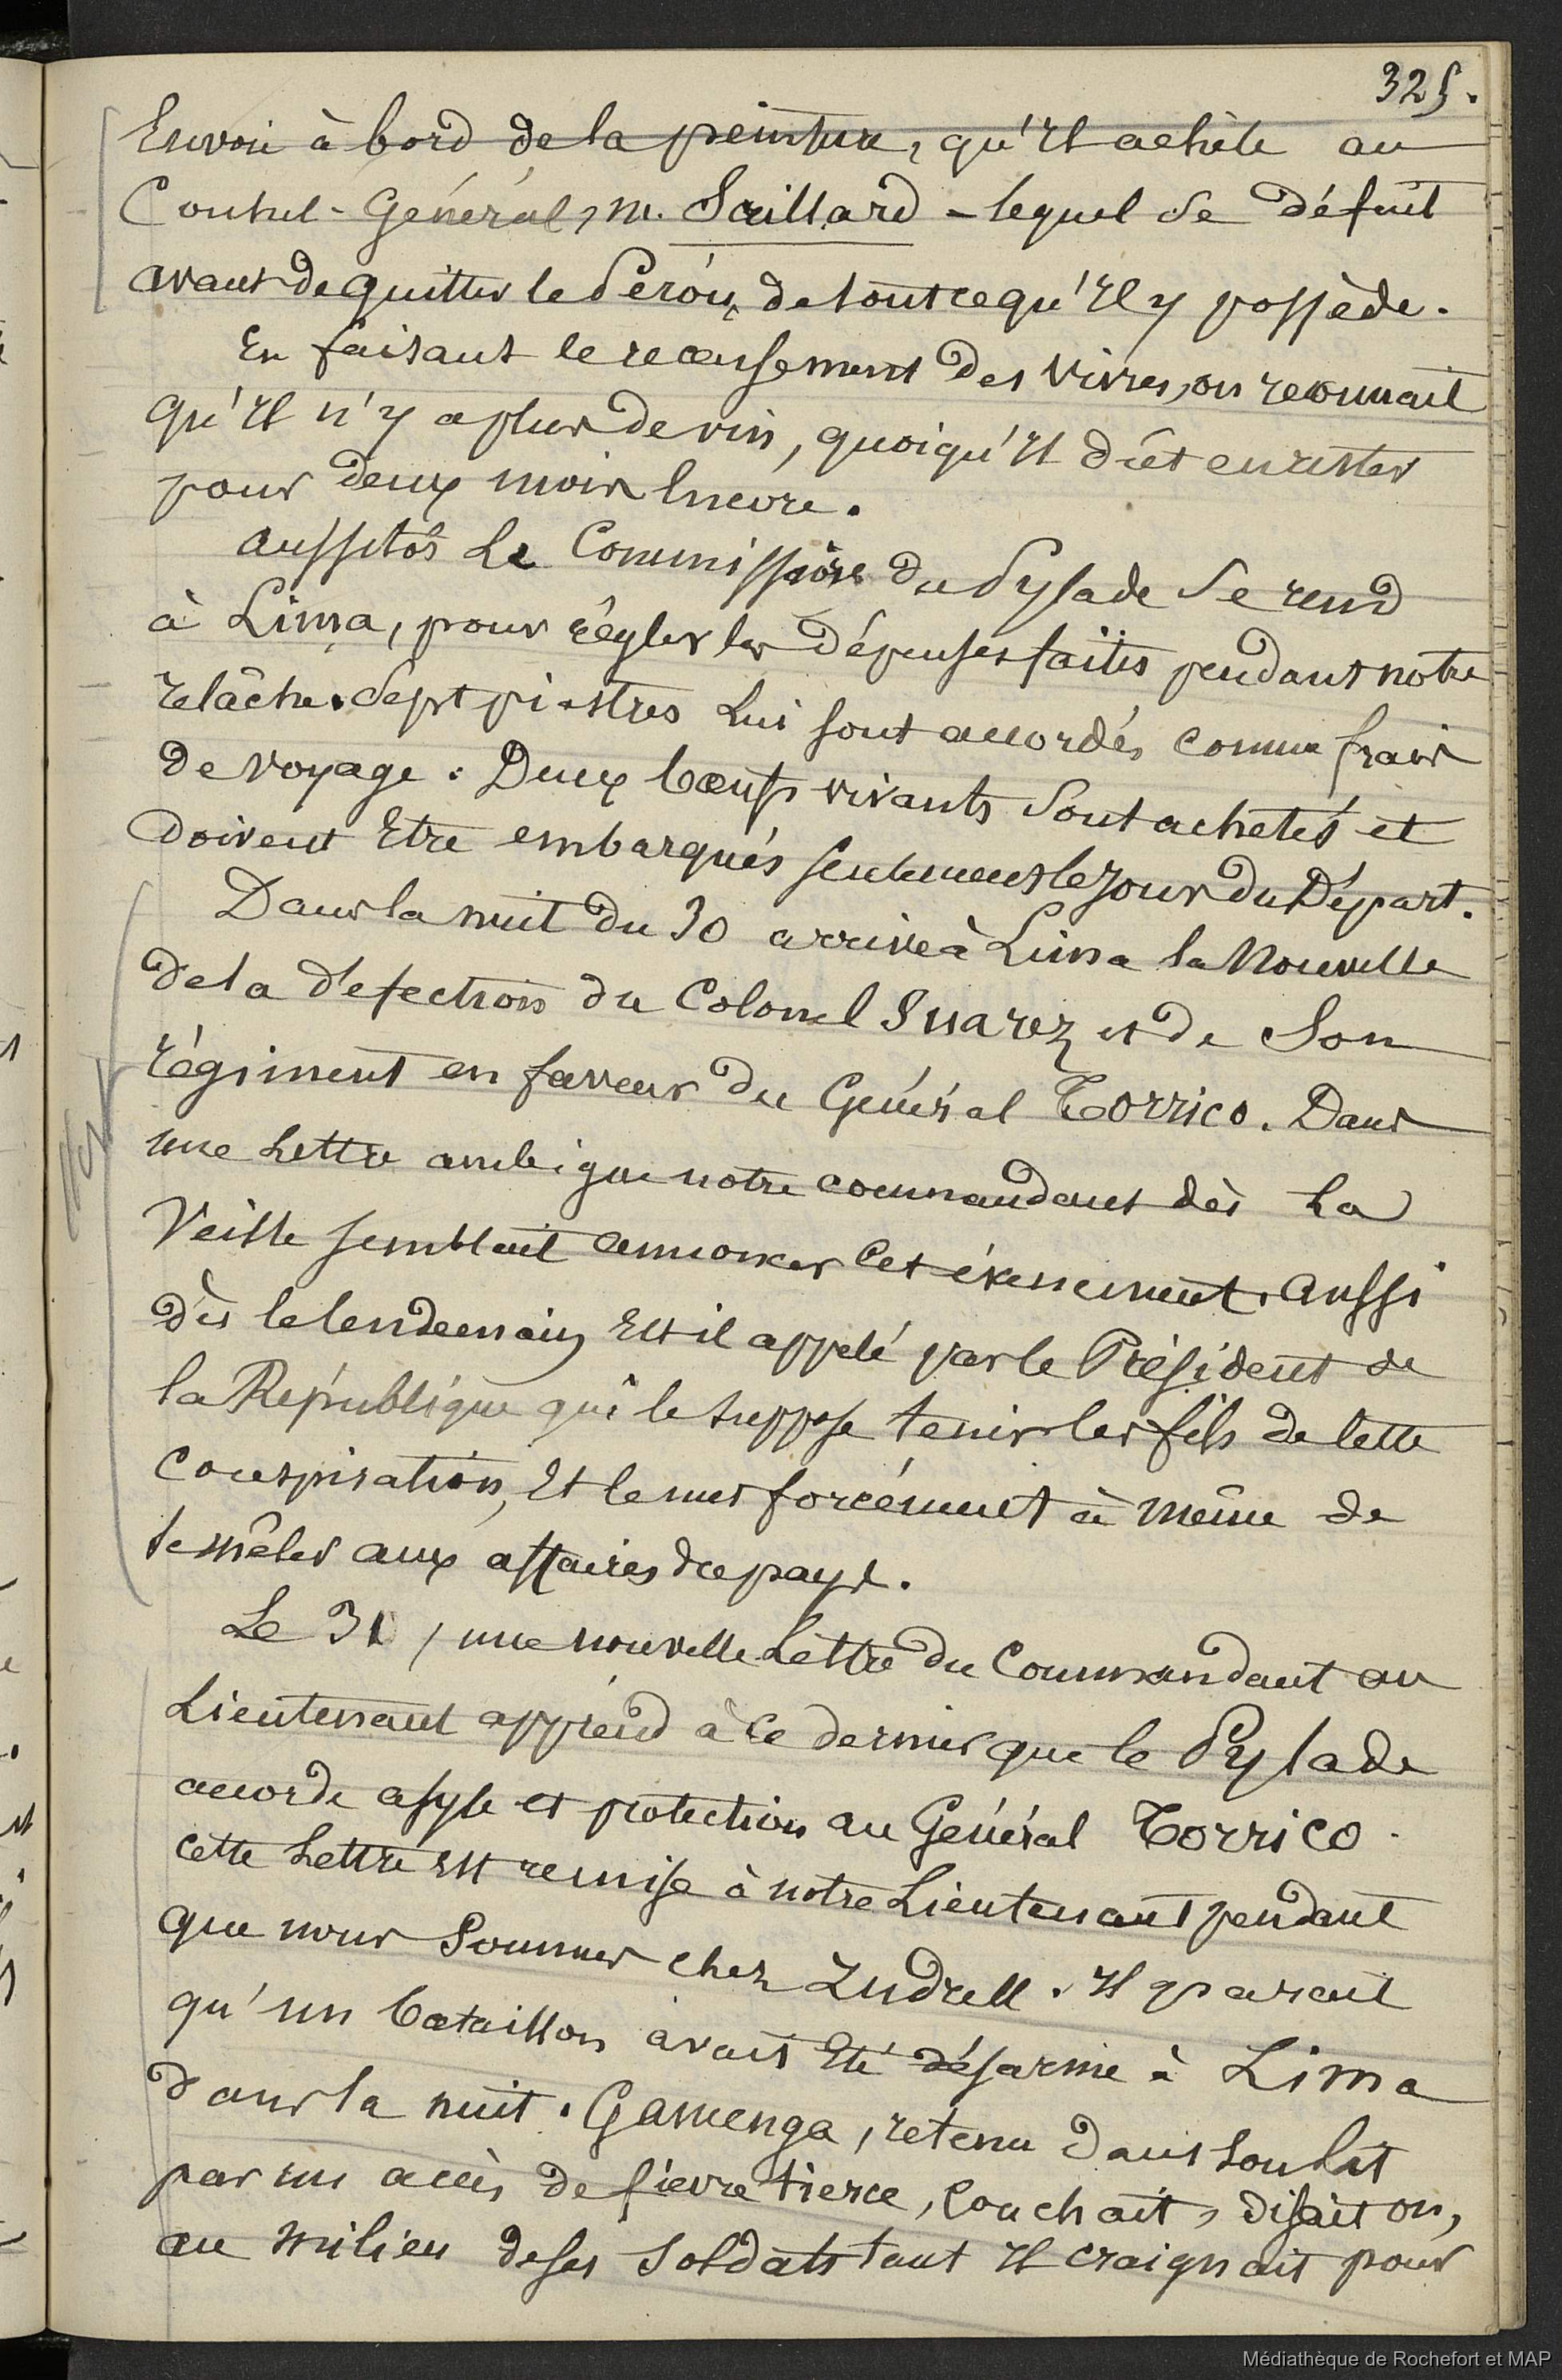 325.
Envoi à bord de la peinture, qu'il achète au
Consul-Général, M. Saillard - lequel se défait
avant de quitter le Pérou, de tout ce qu'il y possède.
En faisant le recensement des vivres, on reconnait
qu'il n'y a plus de vin, quoiqu'il dût en rester
pour deux mois encore.
Aussitôt Le Commissaire du Pylade se rend
à Lima, pour régler les dépenses faites pendant notre
relâche. Sept piastres Lui sont accordés comme frais
de voyage. Deux bœufs vivants sont achetés et
doivent Etre embarqués seulement le jour du Départ.
Dans la nuit du 30 arrive à Lima la Nouvelle
de la défection du Colonel Suarez et de Son
régiment en faveur du Général Torrico. Dans
une Lettre ambigue notre commandant dès La
Veille semblait annoncer Cet évènement. Aussi
dès le lendemain Est il appelé par le Président de
la République qui le suppose tenir les fils de cette
Conspiration, Et le met forcément à même de
se mêler aux affaires du pays.
Le 31, une nouvelle Lettre du Commandant au
Lieutenant apprend à ce dernier que le Pylade
accorde asyle et protection au Général Torrico.
cette Lettre Est remise à notre Lieutenant pendant
que nous Sommes chez Zudrell. Il parait
qu'un bataillon avait Eté désarmé à Lima
dans la nuit. Gamenga, retenu dans son Lit
par un accès de fièvre tierce, couchait, disait on,
au milieu de ses soldats tant Il craignait pour
Médiathèque de Rochefort et MAP